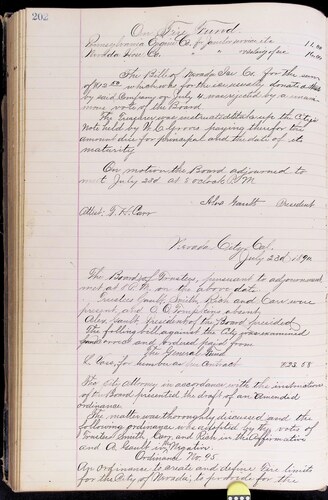 202
On Fire Fund
Pennsylvania Engine Co. for janitor services etc 11.00
Nevada Hose Co. " " Salary of sec
The Bill of Nevada Hose Co. for the sum
of which was for the usually donated
by said Company on July 4 was rejected by a unani-
mous vote of the Board
The Treasurer was instructed to take up the City's
Note held by W. C. Groves paying therefor the
amount due for principal and the date of its
maturity
On motion the Board adjourned to
meet July 23d at 8 o'clock P.M.
Alex Gault President
Attest: T. H. Carr
Nevada City, Cal.
July 23d 1890
The Board of Trustees, pursuant to adjournment
met at 8 P.M. on the above date
Trustees Gault, Smith, Rich and Carr were
present and C. O. Tompkins absent,
Alex Gault, president of the Board presided
The following bill against the City was examined
and ordered paid from
The General Fund
for lumber 
The city Attorney in accordance with the instructions
of the Board presented the draft of an Amended
ordinance.
The matter was thoroughly discussed and the
following ordinance was adopted by the vote of
Trustees Smith, Carr, and Rich in the affirmative
and A. Gault in Negative.
Ordinance No. 95
An ordinance to create and define fire limits
for the City of Nevada; to provide for the